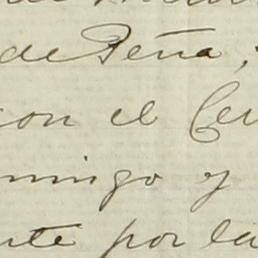 de Peña,
con el Cer
mingo y
nte por la